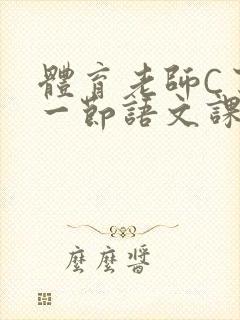 體育老師C了
一節語文課
麼麼醬